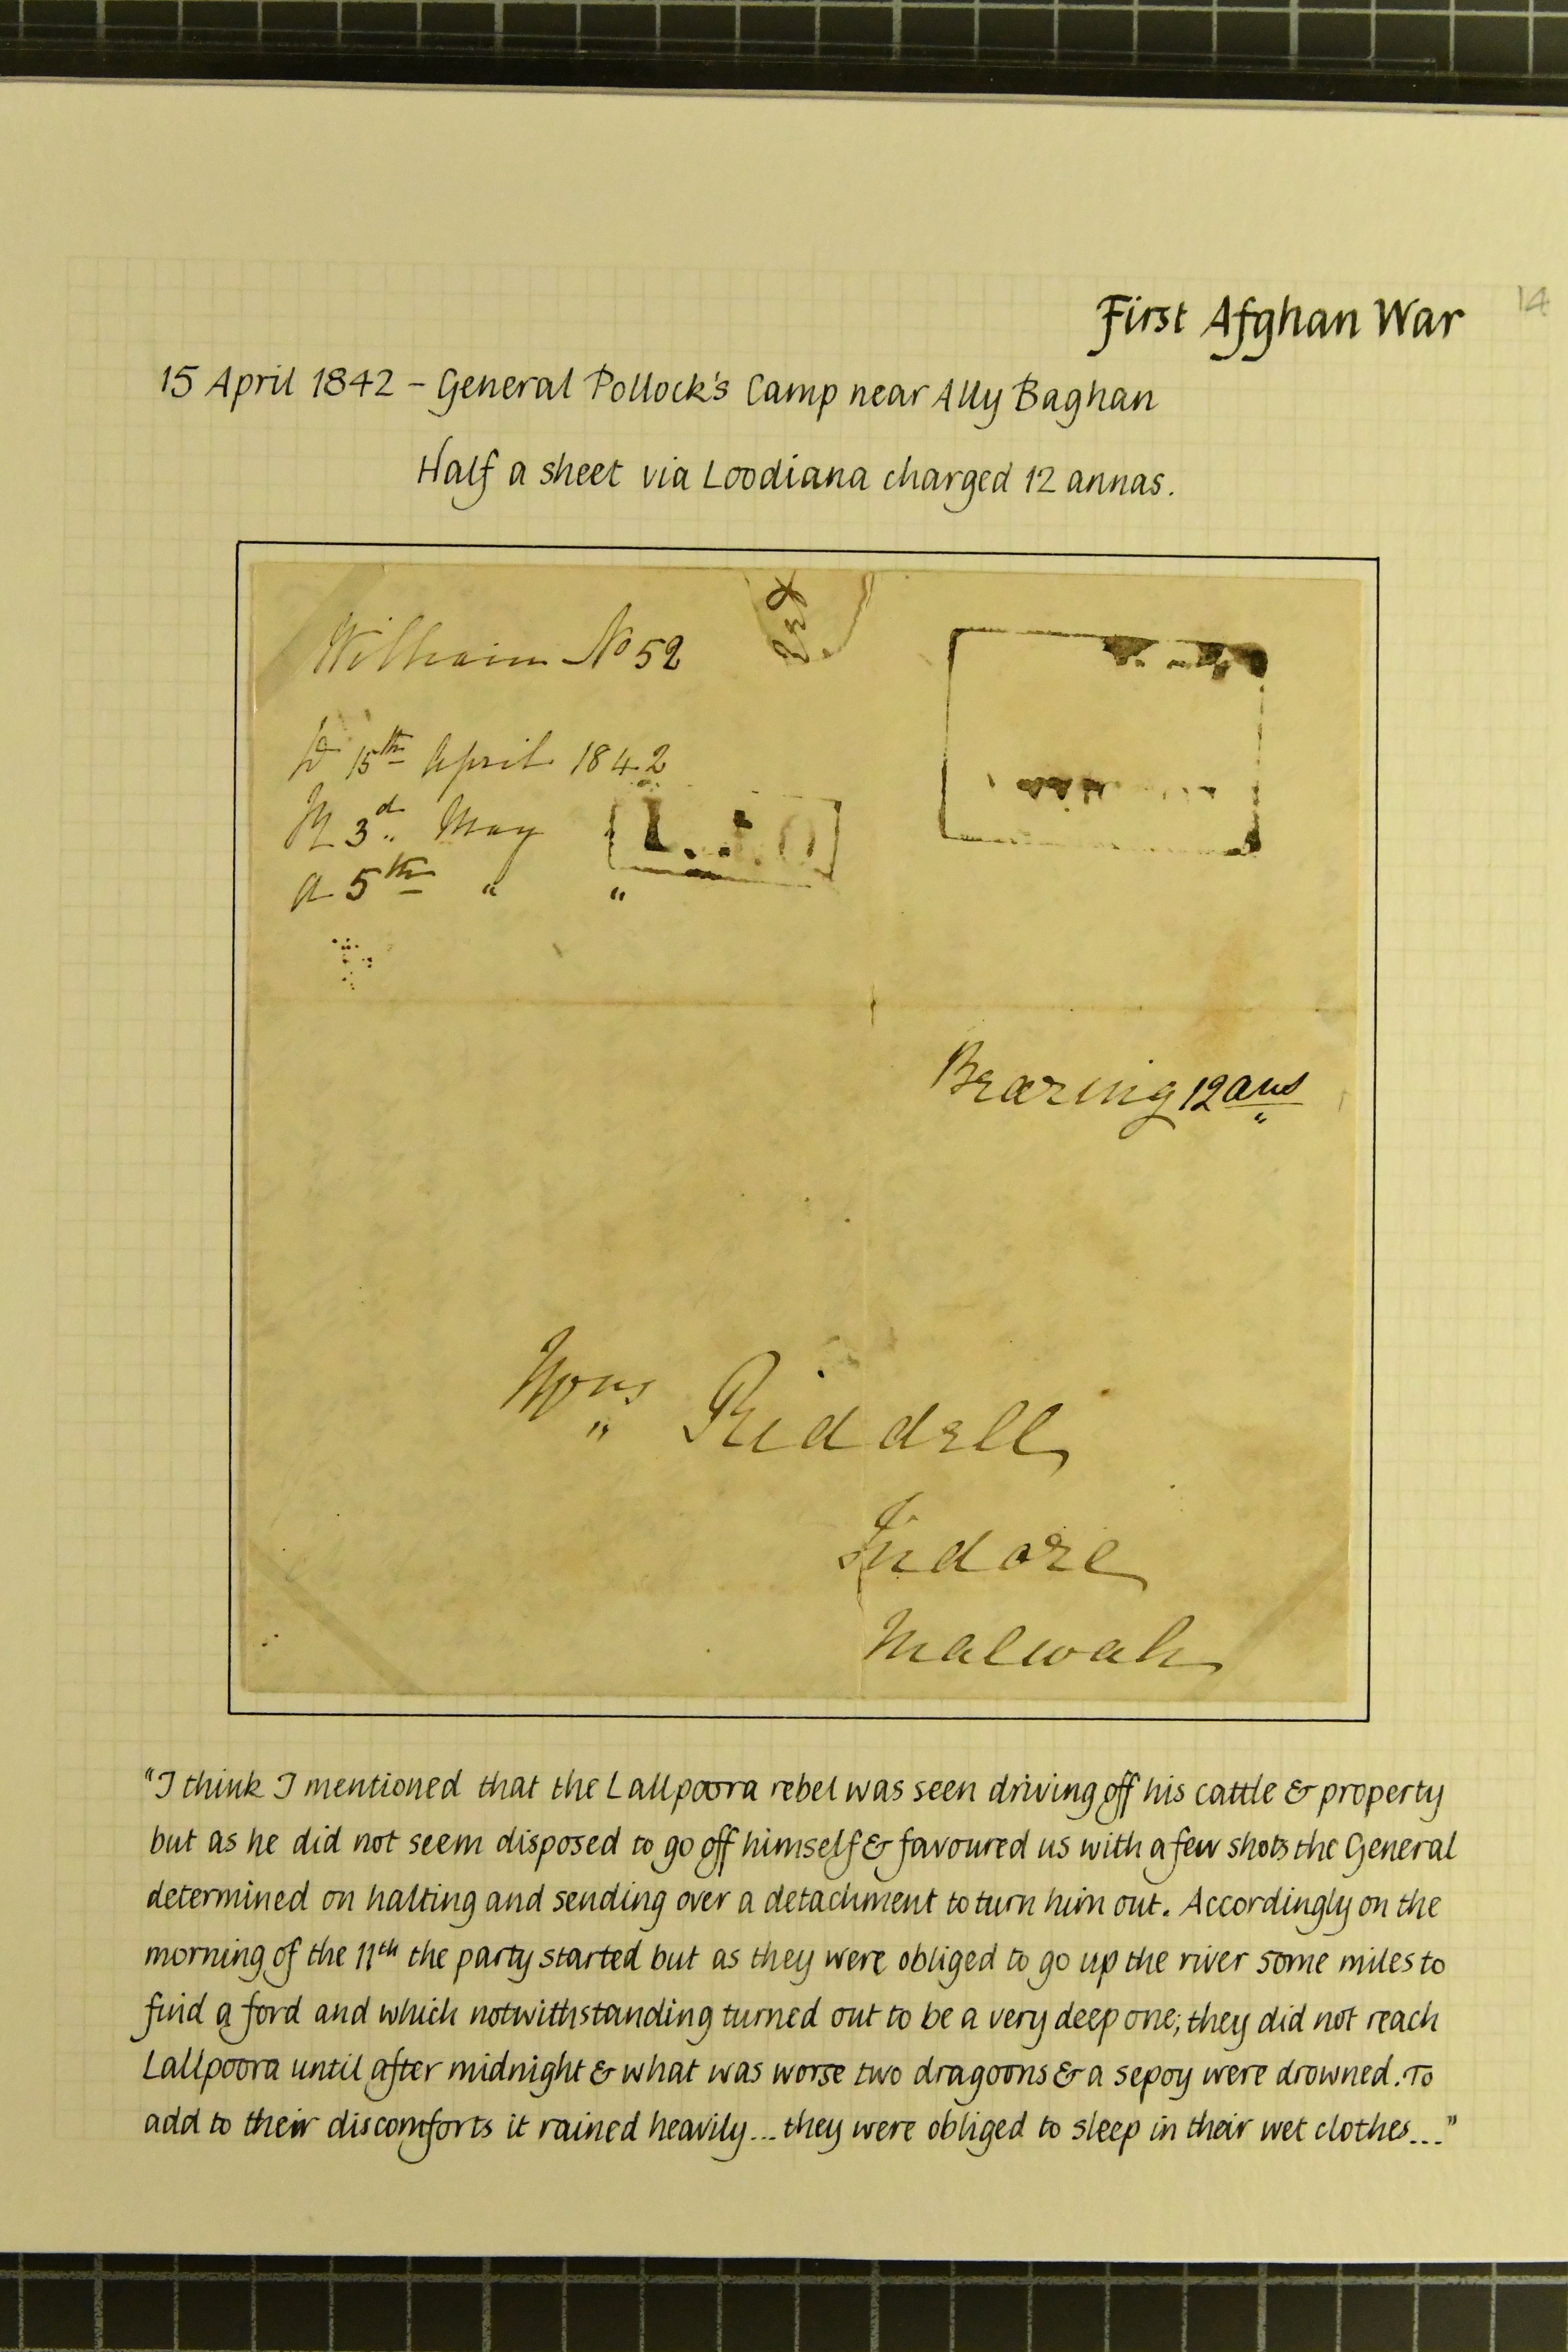 First Afghan War
14
15 April 1842 – General Pollock's Camp near Ally Baghan
Half a sheet via Loodiana charged 12 annas.
William No 52
15th April 1842
3d May
a 5th " "
Bearing 12 ans
Mrs Riddell
Indore
Malwah
"I think I mentioned that the Lallpoora rebel was seen driving off his cattle & property
but as he did not seem disposed to go off himself & favoured us with a few shots the General
determined on halting and sending over a detachment to turn him out. Accordingly on the
morning of the 11th the party started but as they were obliged to go up the river some miles to
find a ford and which notwithstanding turned out to be a very deep one; they did not reach
Lallpoora until after midnight & what was worse two dragoons & a sepoy were drowned. To
add to their discomforts it rained heavily... they were obliged to sleep in their wet clothes..."